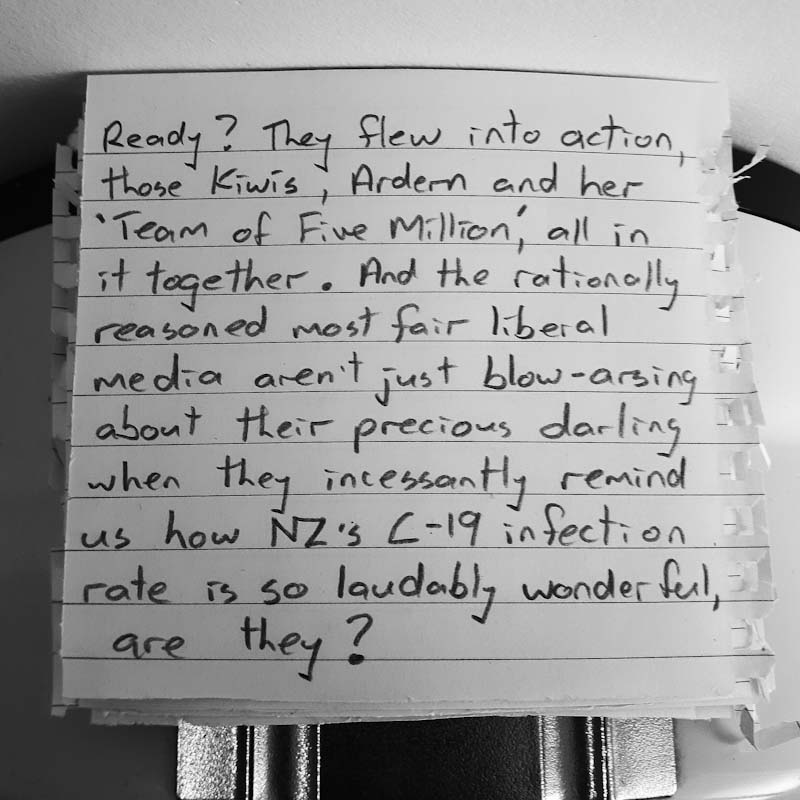 Ready? They flew into action,
those Kiwis, Ardern and her
'Team of Five Million', all in
it together. And the rationally
reasoned most fair liberal
media aren't just blow-arsing
about their precious darling
when they incessantly remind
us how NZ's C-19 infection
rate is so laudably wonderful,
are they?